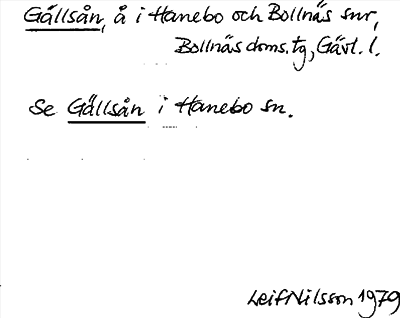 Gällsån, å i Hanebo och Bollnäs snr,
Bollnäs doms.tg, Gävl. l.
Se Gällsån i Hanebo sn.
Leif Nilsson 1979